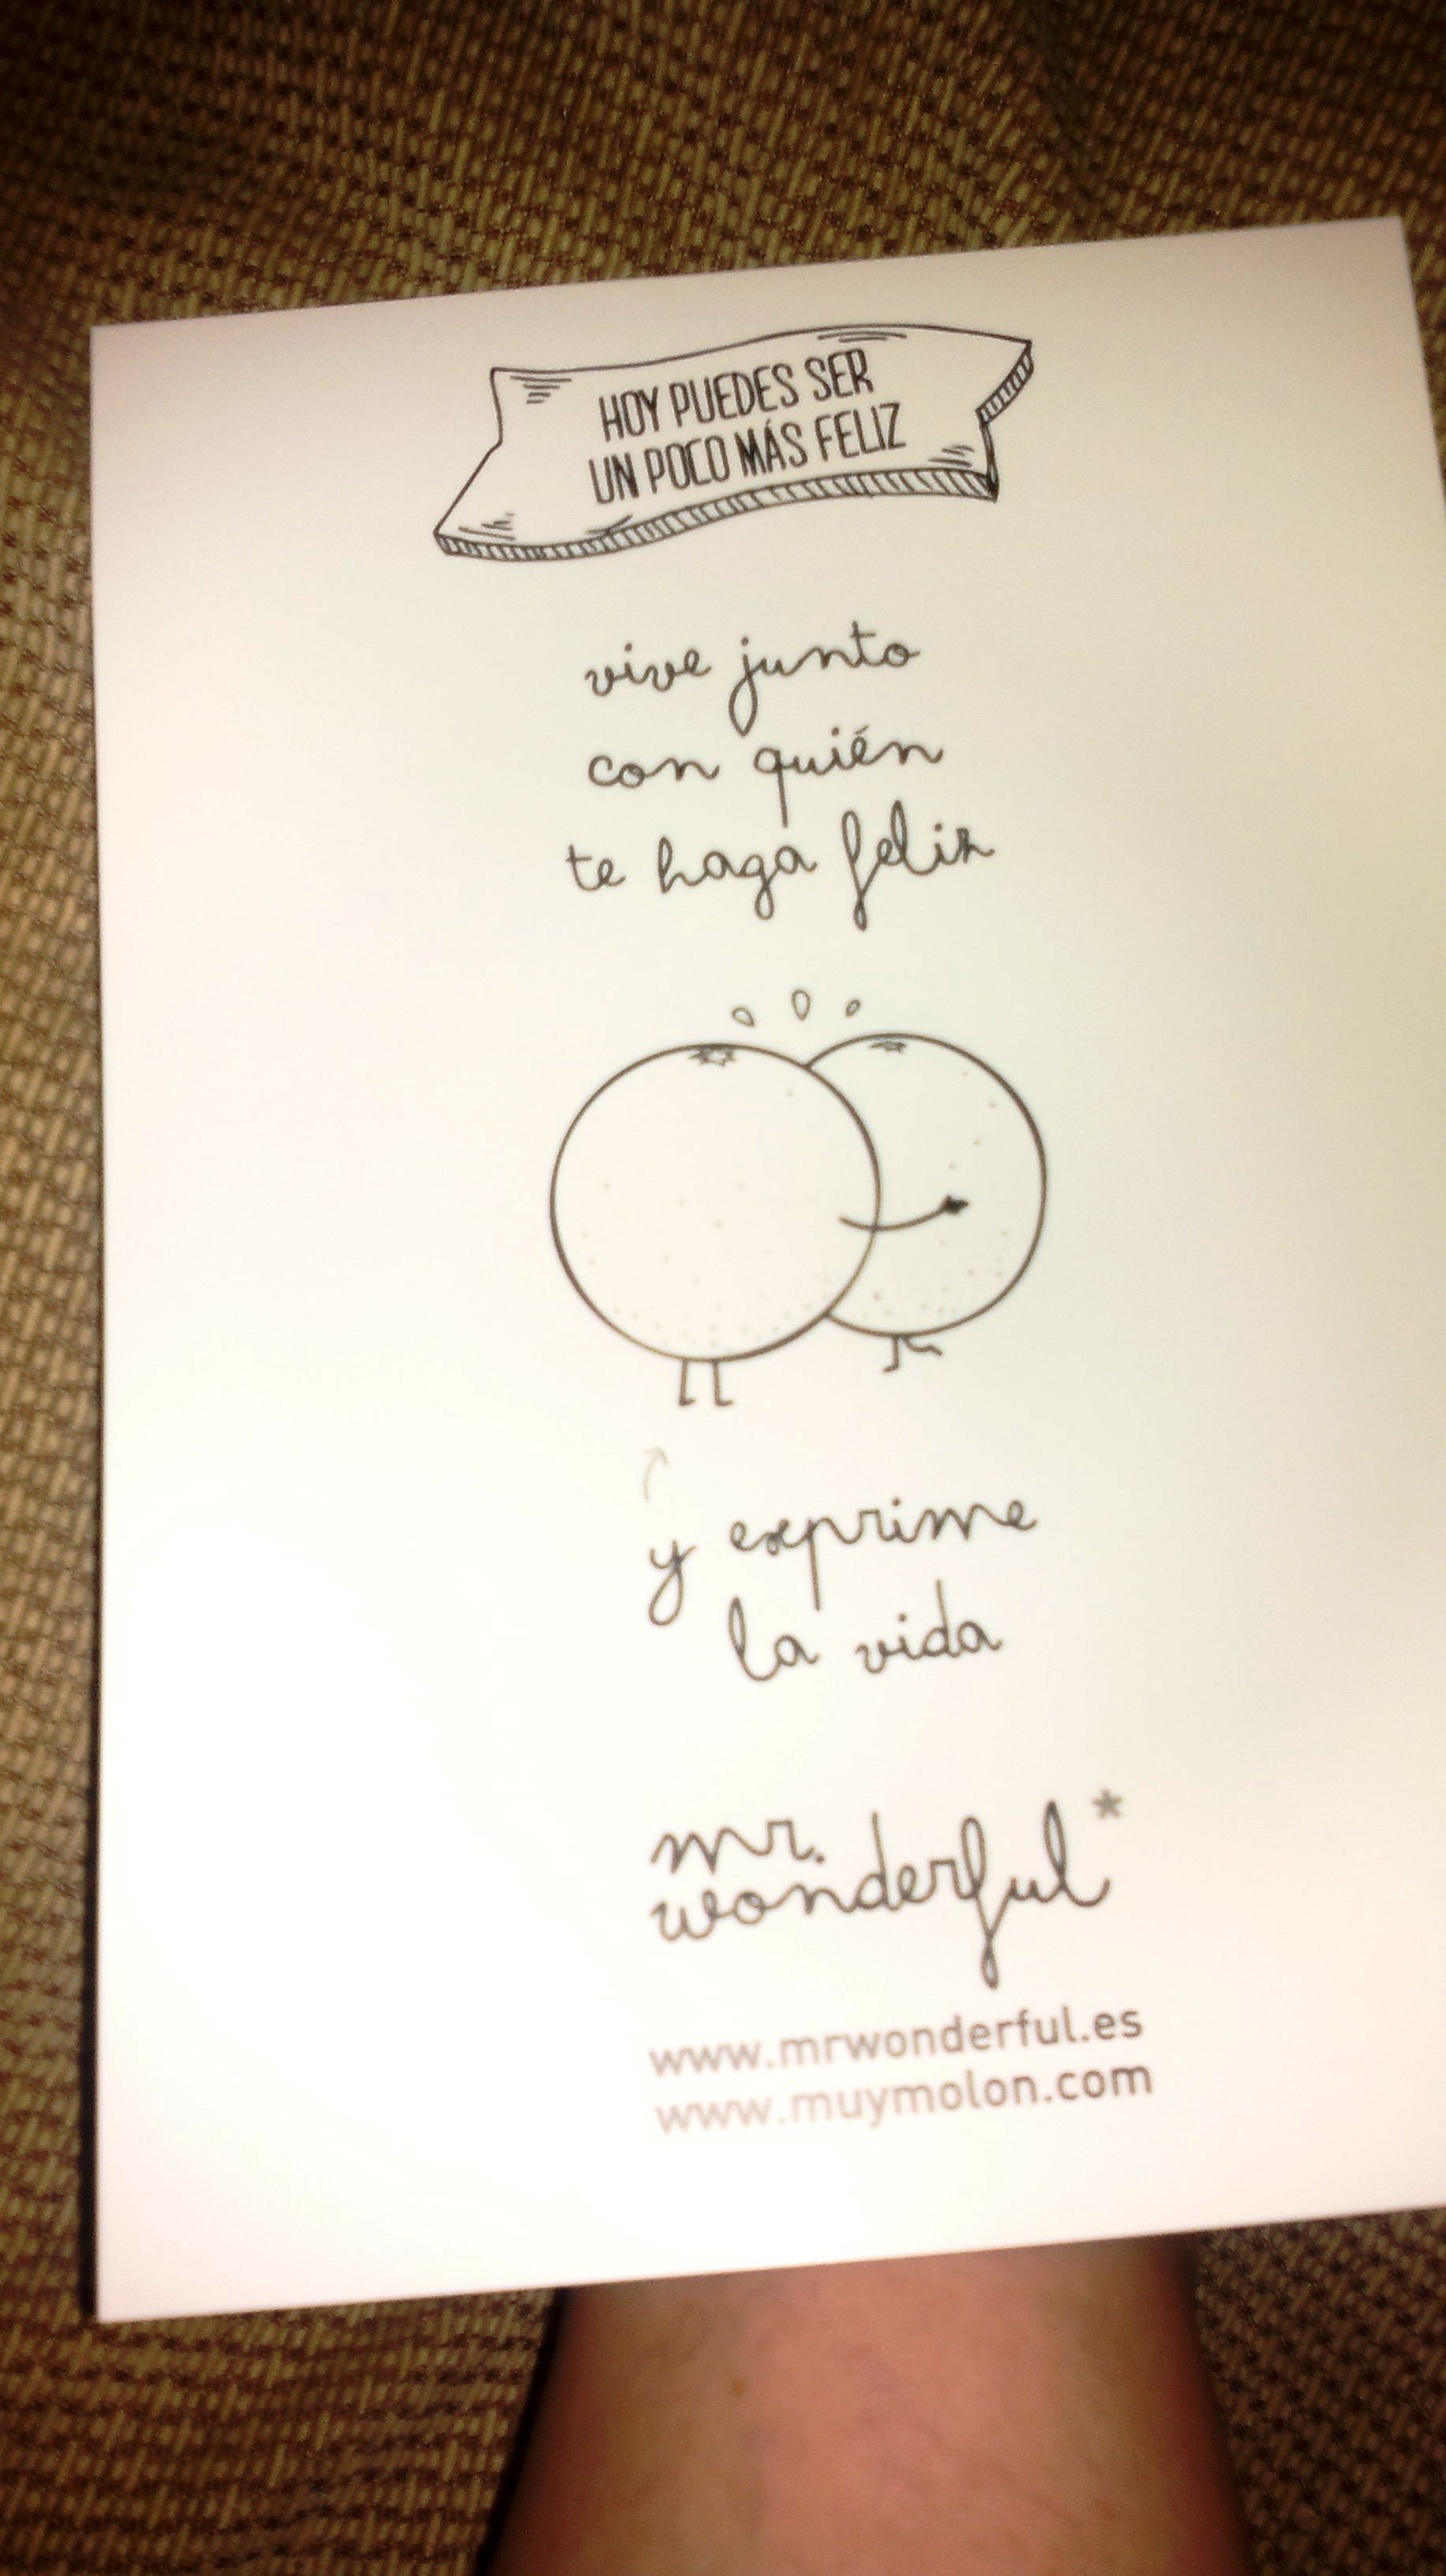 HOY PUEDES SER
UN POCO MÁS FELIZ
vive junto
con quién
te haga feliz
y exprime
la vida
mr.
wonderful*
www.mrwonderful.es
www.muymolon.com